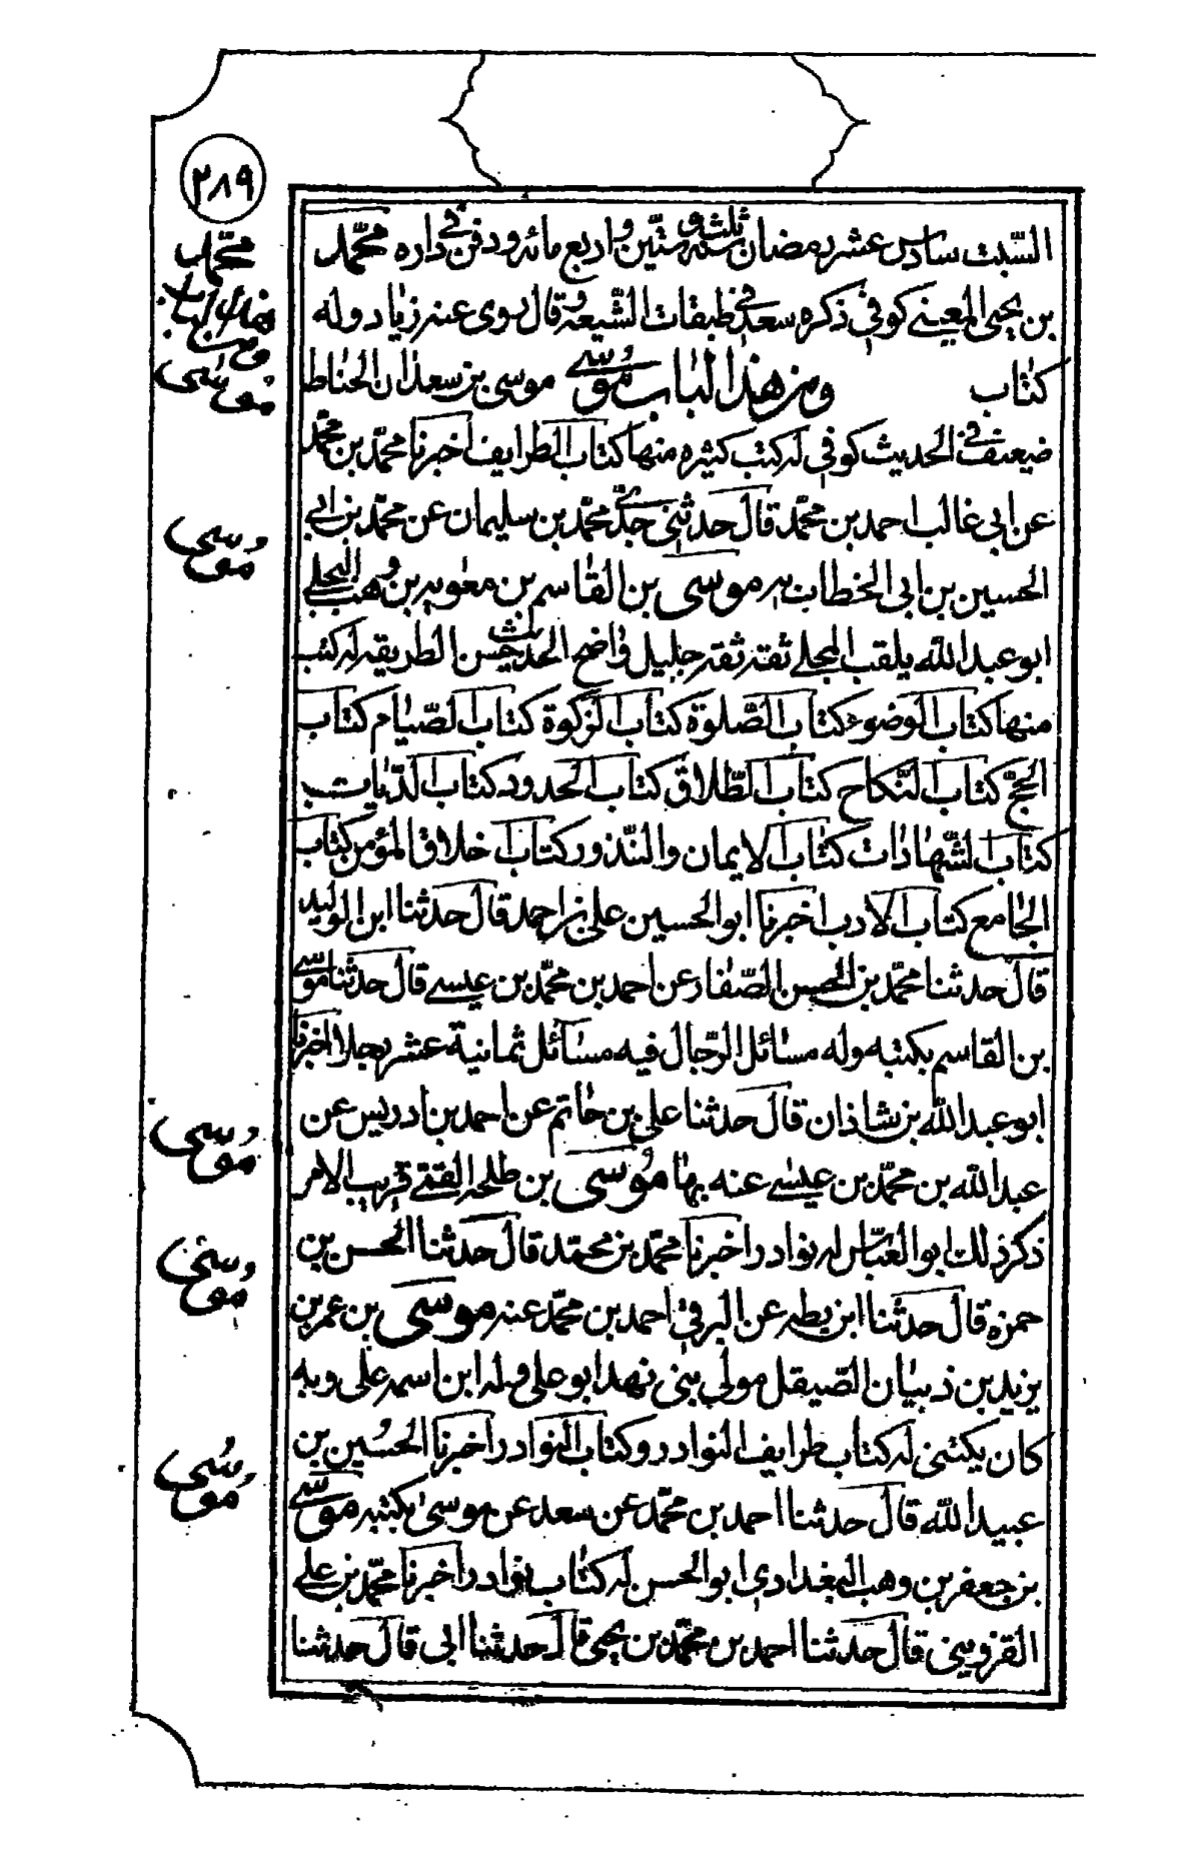 ٢٨٩
السّبت سادس عشر رمضان سنة ثلثة و ستّين و اربع مائه و دفن في داره محمّد
بن يحيى المعيني كوفي ذكره سعد في طبقات الشّيعة و قال روى عنه زياد وله
كتاب ومن هذا الباب موسى موسى بن سعدان الحناط
ضعيف في الحديث كوفي له كتب كثيره منها كتاب الطرايف اخبرنا محمّد بن محمّد
عن ابي غالب احمد بن محمّد قال حدثنى جدّي محمّد بن سليمان عن محمّد بن ابي
الحسين بن ابى الخطاب به موسى بن القاسم بن معوية بن وهب البجلي
ابو عبد الله يلقب المجلي ثقة ثقة جليل واضح الحديث حسن الطريقه له كتب
منها كتاب الوضوء كتاب الصّلوة كتاب الزكوة كتاب الصّيام كتاب
الحجّ كتاب النّكاح كتاب الطّلاق كتاب الحدود كتاب الدّيات
كتاب الشّهادات كتاب الايمان والنّذور كتاب اخلاق المؤمن كتاب
الجامع كتاب الادب اخبرنا ابو الحسين على بن احمد قال حدثنا ابن الوليد
قال حدثنا محمّد بن الحسن الصّفار عن احمد بن محمّد بن عيسى قال حدثنا موسى
بن القاسم بكتبه وله مسائل الرّجال فيه مسائل ثمانية عشر رجلا اخبرنا
ابو عبد الله بن شاذان قال حدثنا على بن حاتم عن احمد بن ادريس عن
عبد الله بن محمّد بن عيسى عنه بها موسى بن طلحه القمّي قريب الامر
ذكر ذلك ابو العبّاس له نوادر اخبرنا محمّد بن محمّد قال حدثنا الحسن بن
حمزه قال حدثنا ابن بطه عن البرقي احمد بن محمّد عنه موسى بن عمر بن
يزيد بن ذبيان الصّيقل مولى بنى نهد ابو على وله ابن اسمه على وبه
كان يكتنى له كتاب طرايف النوادر و كتاب النوادر اخبرنا الحسين بن
عبيد الله قال حدثنا احمد بن محمّد عن سعد عن موسى بكتبه موسى
بن جعفر بن وهب البغدادى ابو الحسن له كتاب نوادر اخبرنا محمّد بن على
القزوينى قال حدثنا احمد بن محمّد بن يحيى قال حدثنا ابى قال حدثنا
محمّد
ومن هذا الباب
موسى
موسى
موسى
موسى
موسى